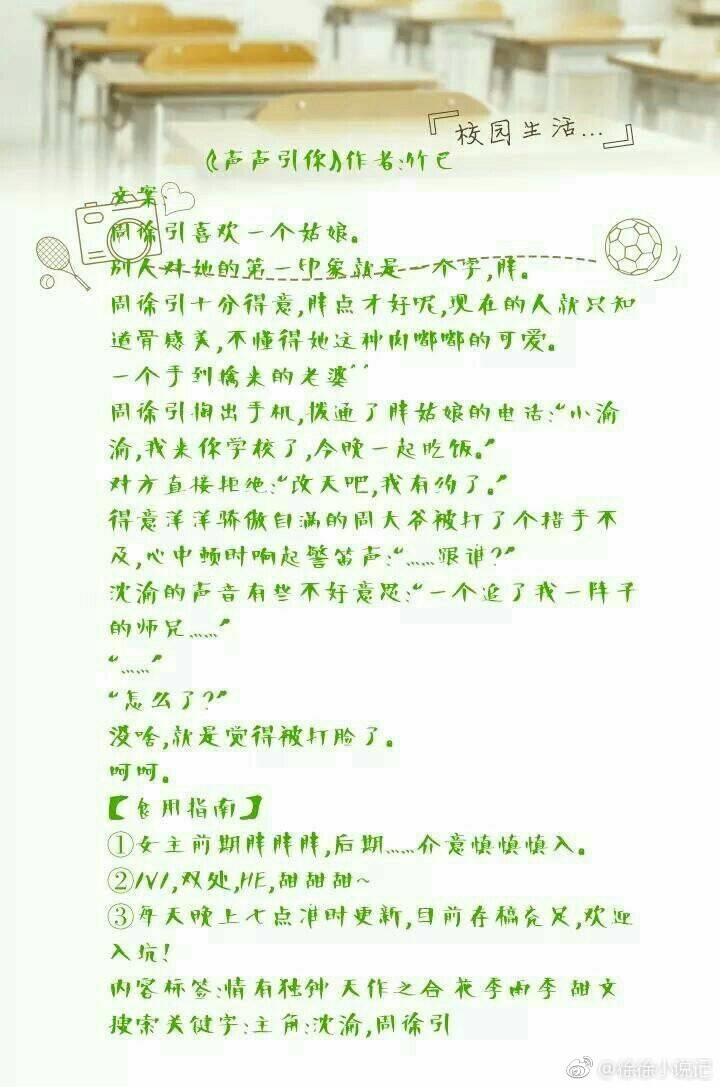 『校园生活...』
《声声引你》作者:竹已
文案:
周徐引喜欢一个姑娘。
别人对她的第一印象就是一个字,胖。
周徐引十分得意,胖点才好呢,现在的人就只知
道骨感美,不懂得她这种肉嘟嘟的可爱。
一个手到擒来的老婆^^
周徐引掏出手机,拨通了胖姑娘的电话:“小渝
渝,我来你学校了,今晚一起吃饭。”
对方直接拒绝:“改天吧,我有约了。”
得意洋洋骄傲自满的周大爷被打了个措手不
及,心中顿时响起警笛声:“……跟谁?”
沈渝的声音有些不好意思:“一个追了我一阵子
的师兄……”
“……”
“怎么了?”
没啥,就是觉得被打脸了。
呵呵。
【食用指南】
①女主前期胖胖胖,后期……介意慎慎慎入。
②1V1,双处,HE,甜甜甜~
③每天晚上七点准时更新,目前存稿充足,欢迎
入坑!
内容标签:情有独钟 天作之合 花季雨季 甜文
搜索关键字:主角:沈渝,周徐引
@徐徐小说记